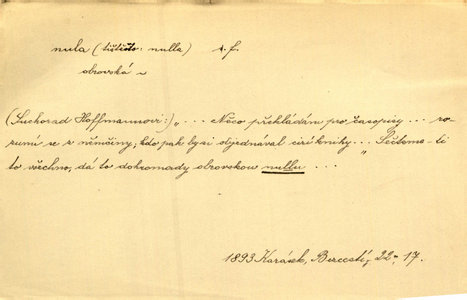 nula (tištěto: nulla) s. f.
obrovská ~
(Suchorad Hoffmannovi:) „ ... Něco překládám pro časopisy ... ro-
zumí se z němčiny; kdo pak by si objednával celé knihy ... Sečteme-li
to všechno, dá to dohromady obrovskou nullu ... "
1893 Karásek, Bezcestí, 22, 17.